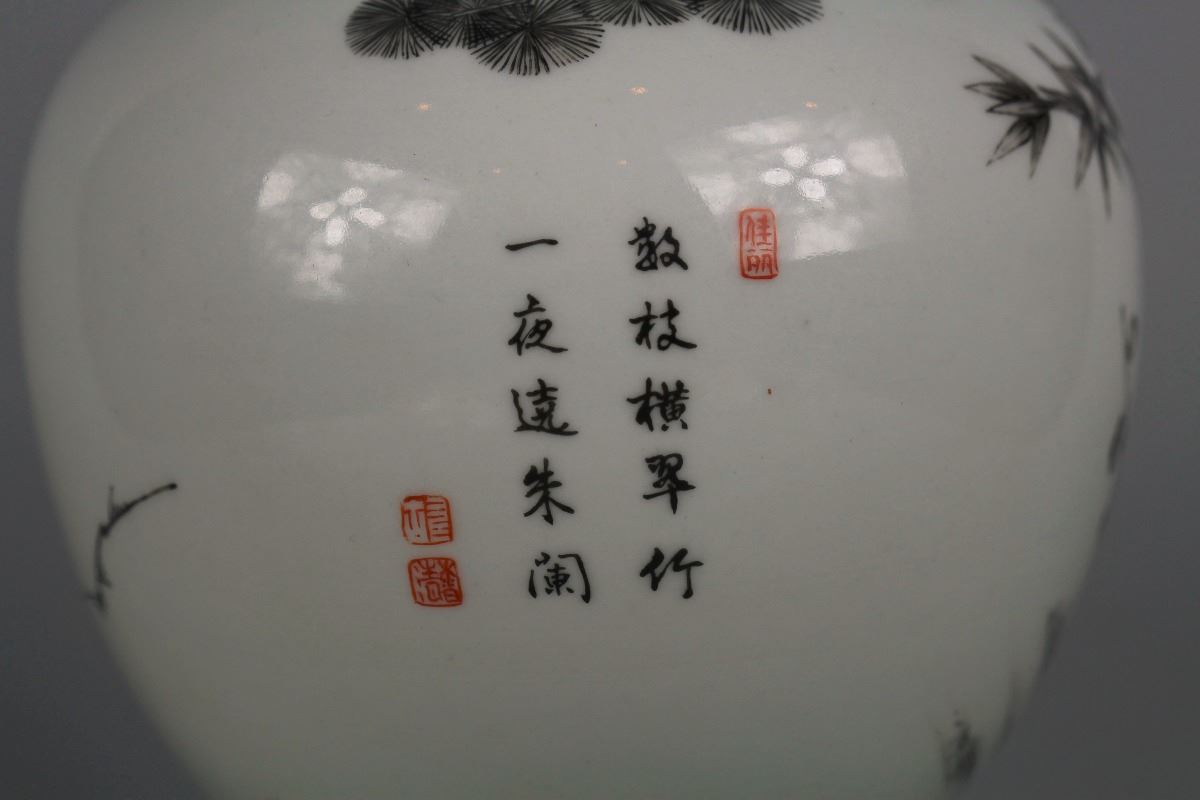 佳丽
數枝橫翠竹
一夜遶朱闌